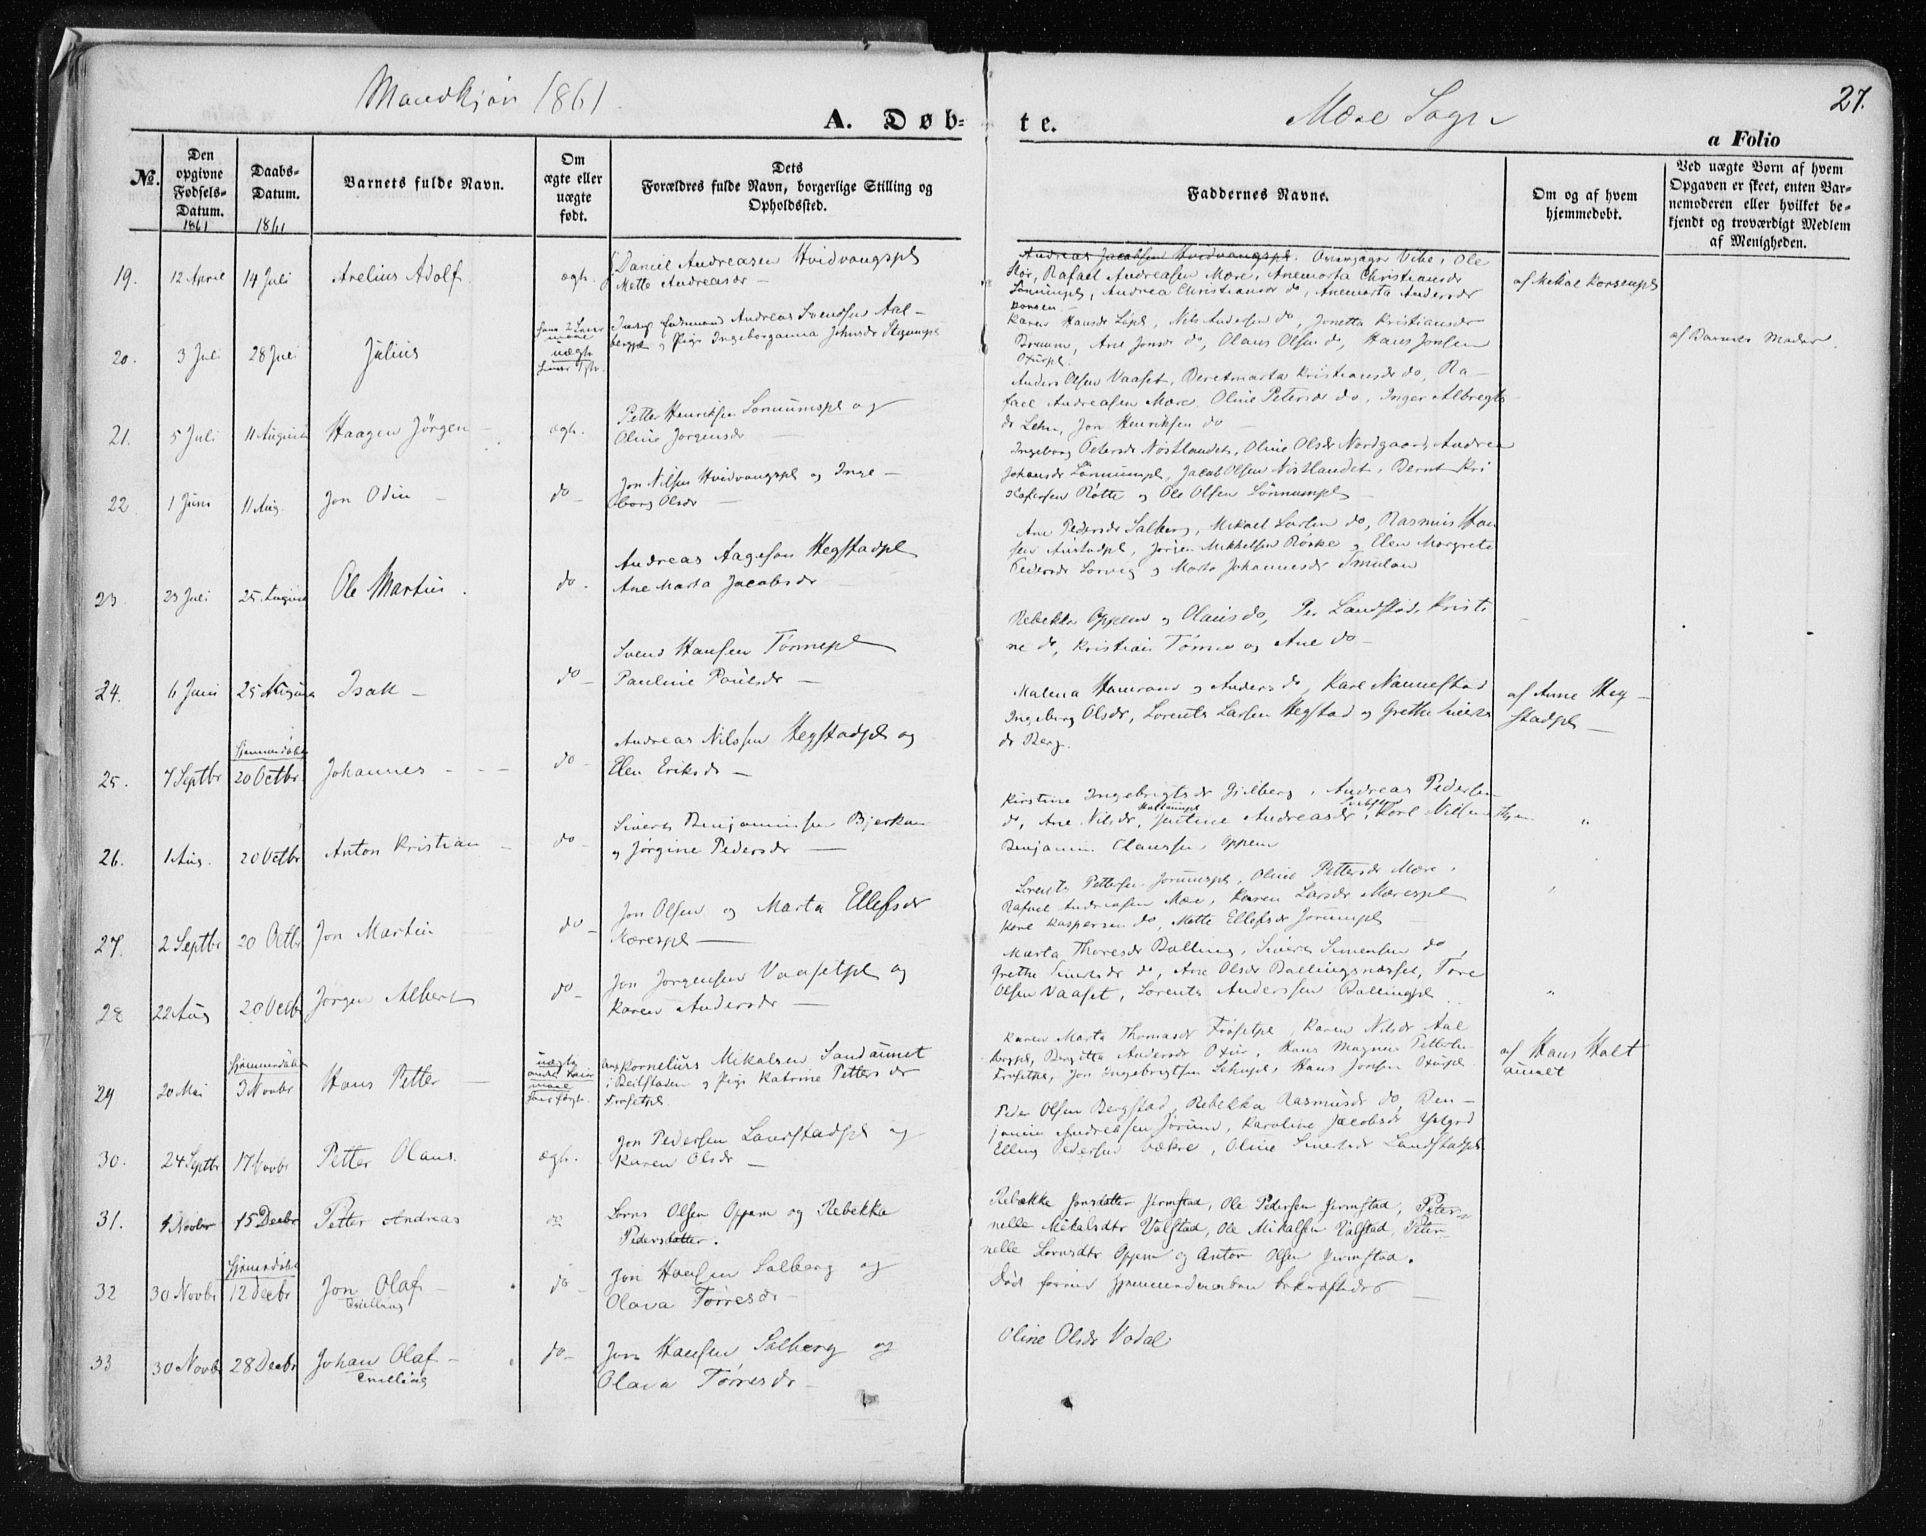 Mandkjøn 1861
Mære Sogn
27.
A. Døb-
te.
a Folio
No.
Den opgivne Fødsels-Datum. 1861
Daabs-Datum. 1861
Barnets fulde Navn.
Om ægte eller uægte født.
Dets Forældres fulde Navn, borgerlige Stilling og Opholdssted.
Faddernes Navne.
Om og af hvem hjemmedøbt.
Ved uægte Børn af hvem Opgaven er skeet, enten Barnemoderen eller hvilket bekjendt og troværdigt Medlem af Menigheden.
19. 12 April 14 Juli Arelius Adolf ægte.
Daniel Andreasen Hvidvangspl
Mette Andreasdr —
Andreas Jacobsen Hvidvangspl. Vibe, Ole
Rafael Andreasen Mære, Anemarta Christiansdr
Andrea Christiansdr do, Anemarta Andersdr
af Mikal
20. 3 Juli 28 Juli Julius
uægte
Andreas Svendsen Aal-
bergpl og Pige Ingeborganna Johnsdr
Karen Hansdr, Nils Andersen do, Jonetta Kristiansdr
Ane Jonsdr do, Olaus Olsen do, Hans Jonsen
af Barnets Moder.
21. 5 Juli 11 August Haagen Jørgen — ægte.
Petter Henriksen Lønnumspl og
Oline Jørgensdr —
Anders Olsen Vaaset, Beretmarta Kristiansdr do, Ra-
fael Andreasen Mære, Oline Petersdr do, Inger Albregts
dr Lehn, Jon Henriksen do —
22. 1 Juni 11 Aug. Jon Odin — do —
Jon Nilsen Hvidvangspl og Inge-
borg Olsdr —
Ingeborg Petersdr Nøstlandet, Oline Olsdr Nordgaard, Andrea
Johansdr Lønnumpl, Jacob Olsen Nøstlandet, Bernt Kri
stofersen Røtte og Ole Olsen Lønnumpl —
23. 23 Juli 25 August Ole Martin. do —
Andreas Aagesen Hegstadpl
Ane Marta Jacobsdr —
Ane Pedersdr Salberg, Mikael Larsen do, Rasmus Han
sen Austadpl, Jørgen Mikkelsen Røske og Elen Margrete
Pedersdr Lorvig og Marta Johannesdr Smulan
24. 6 Juni 25 August Isak — do —
Svend Hansen Tømmepl
Pauline Poulsdr —
Rebekka Oppem og Olaus do, Per Landstad, Kristi
ne do, Kristian Tømme og Ane do —
25. 7 Septbr Hjemmedøbt 20 Octbr Johannes — do —
Andreas Nilssen Hegstadpl og
Elen Eriksdr —
Malena Hamrann og Anders do, Karl Nannestad
Ingeborg Olsdr, Lorents Larsen Hegstad og Grethe Siverts
dr Berg.
af Anne Heg-
stadpl —
26. 1 Aug. 20 Octbr Anton Kristian — do —
Siverts Benjaminsen Bjerkan
og Jørgine Pedersdr —
Kirstine Ingebrigtsdr Gilberg, Andreas Pedersen
do, Ane Nilsdr, Justine Andreasdr, Karl Nilsen
Benjamin Olaussen Oppem
"
27. 2 Septbr 20 Octbr Jon Martin do —
Jon Olsen og Marta Ellefsdr
Mærespl —
Lorents Pettersen Jørumspl, Oline Pettersdr Mære,
Rafael Andreasen Mære, Karen Larsdr Mærespl
Karl Kaspersen do, Mette Ellefsdr Jørumpl —
28 22 Aug 20 Octbr Jørgen Albert do —
Jon Jørgensen Vaasetpl og
Karen Andersdr —
Marta Thoresdr Balling, Siverts Simensen do,
Grethe Sivertsdr do, Ane Olsdr Ballingsnæsset, Tore
Olsen Vaaset, Lorents Anderssen Ballingpl
"
29 20 Mai Hjemmedøbt 3 Novbr Hans Petter —
uægte
Kornelius Mikalsen Sandaunet
i Beitstaden og Pige Katrine Petters dr
Frøsetpl.
Karen Marta Thomasdr Frøsetpl, Karen Nilsdr Aal
bergpl, Bergitta Andersdr, Hans Magnus Petterse
Frøsetpl, Jon Ingebrigtsen, Hans Jonsen
af Hans Halt
aunet
30. 24 Septbr 17 Novbr Petter Olaus. ægte.
Jon Pedersen Landstadpl og
Karen Olsdr —
Peder Olsen Bergstad, Rebekka Rasmusdr do, Ben-
jamin Andreassen Jørum, Karoline Jacobsdr
Elling Pedersen, Oline Sivertsdr Landstadpl
31. 1 Novbr 15 Decbr Petter Andreas do
Lorns Olsen Oppem og Rebekka
Pedersdatter.
Rebække Jonsdatter Jermstad, Ole Pedersen Jermstad, Peter-
nelle Mikalsdtr Valstad, Ole Mikalsen Valstad, Peter-
nelle Lornsdtr Oppem og Anton Olsen Jermstad.
32 30 Novbr Hjemmedøbt 12 Decbr Jon Olaf — Tvilling do —
Jon Hansen Salberg og
Olava Torresdr —
Død førend Hjemmedaaben bekræftedes —
33 30 Novbr 28 Decbr Johan Olaf — Tvilling do —
Jon Hansen Salberg og
Olava Torresdr —
Oline Olsdr Vodal